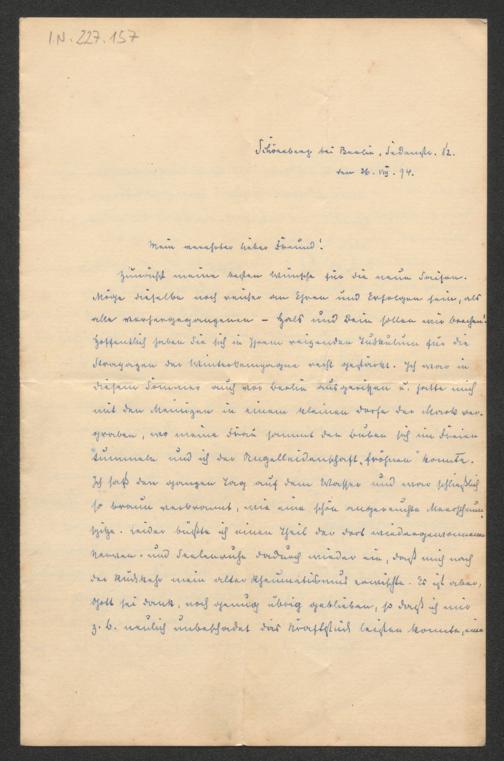 I.N. 227.157
Schöneberg bei Berlin, Sedanstr. 12.
den 26. VIII. 94.
Mein verehrter lieber Freund!
Zunächst meine besten Wünsche für die neue Saison.
Möge dieselbe noch reicher an Ehren und Erfolgen sein, als
alle vorhergegangenen – Hals und Bein sollen mir brechen!
Hoffentlich haben Sie sich in Ihrem reizenden Tuskulum für die
Strapazen der Wintercampagne recht gestärkt. Ich war in
diesem Sommer auch vor Berlin ausgerissen u. hatte mich
mit den Meinigen in einem kleinen Dorfe der Mark ver-
graben, wo meine Frau sammt den Buben sich im Freien
tummeln und ich der Angelleidenschaft „fröhnen“ konnte.
Ich saß den ganzen Tag auf dem Wasser und war schließlich
so braun verbrannt, wie eine schön angerauchte Meerschaum
spitze. Leider büßte ich einen Theil der dort wiedergewonnenen
Nerven- und Seelenruhe dadurch wieder ein, daß mich nach
der Rückkehr mein alter Rheumatismus erwischte. Es ist aber,
Gott sei Dank, noch genug übrig geblieben, so daß ich mir
z. B. neulich unbeschadet das Kraftstück leisten konnte, eine